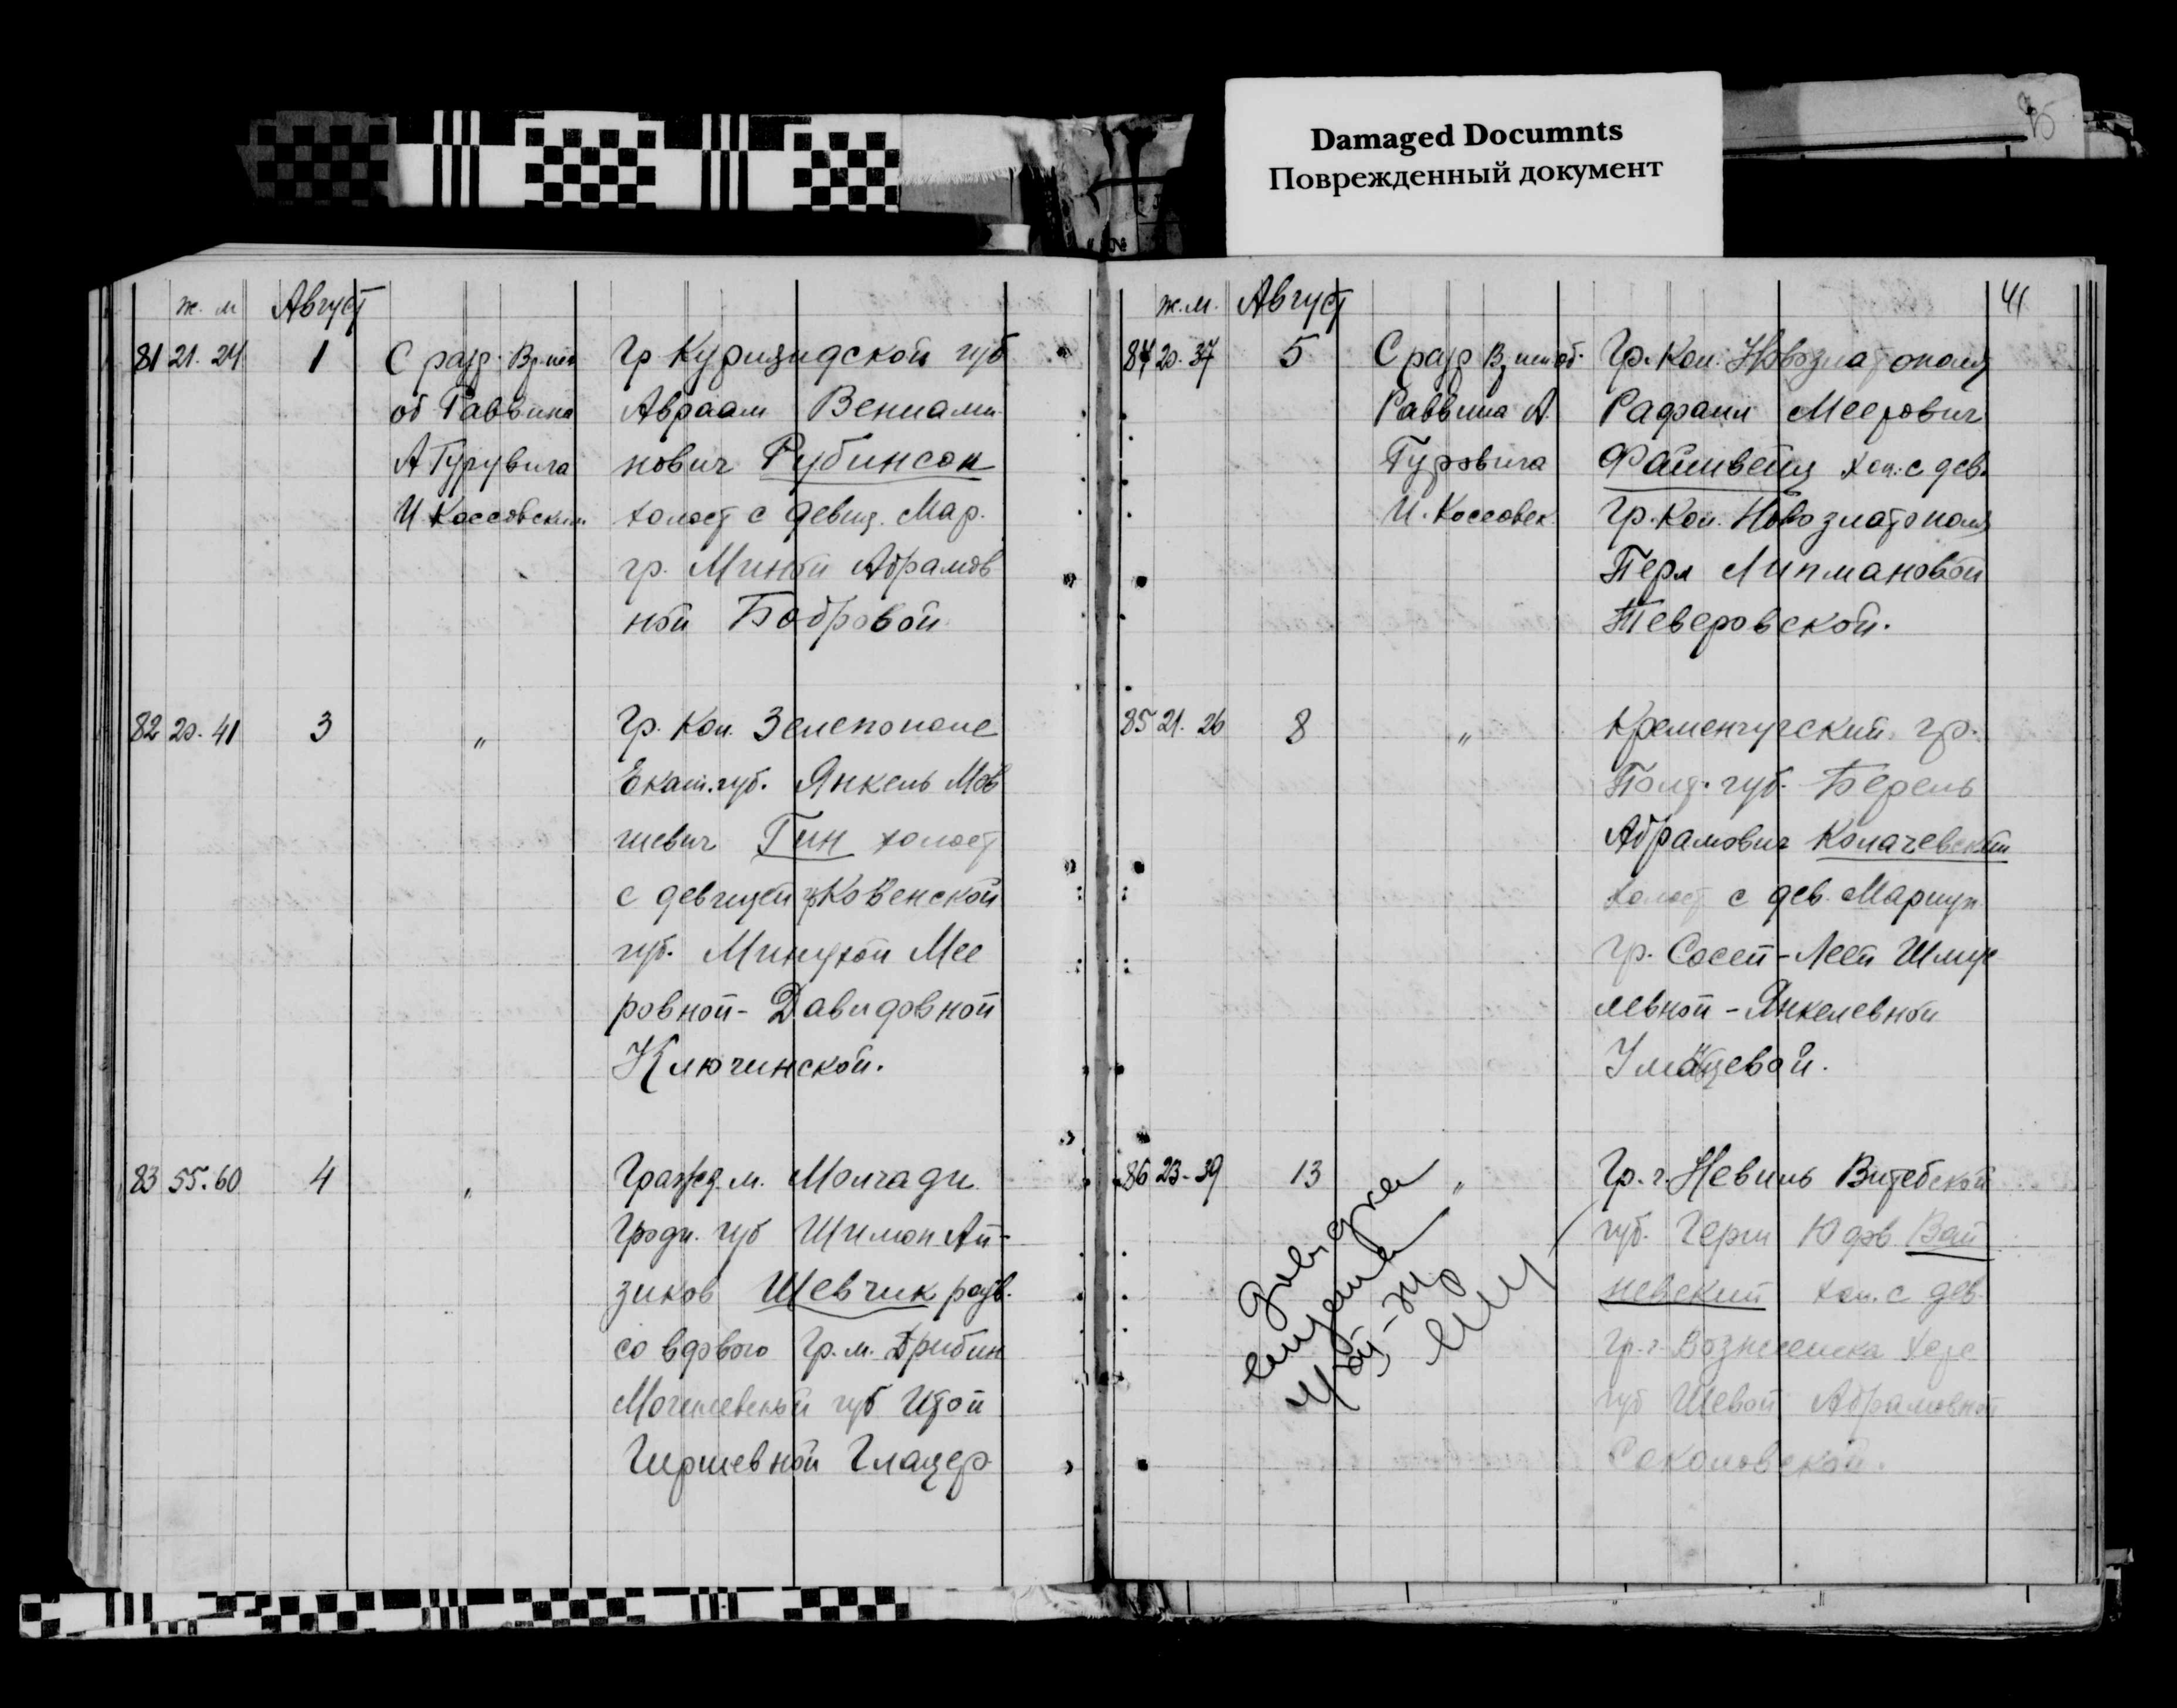 Damaged Documnts
Повержденный документ
ж. м Август
81 21. 24 1 С разр. Вр. исп
об Раввина
А Гурувича
И Коссовским
Гр Курляндской губ
Авраам Вениами
нович Рубинсон
холост с девиц. Мар.
гр. Миной Абрамов
ной Бобровой
82 20. 41 3 "
Гр. Кол. Зеленополе
Екат. губ. Янкель Мов
шевич Гин холост
с девицей гр Ковенской
губ. Минухой Мее
ровной - Давидовной
Ключинской.
83 55. 60 4 "
Гражд. м. Молчади
Гродн. губ Шимон Ай-
зиков Шевчик разв.
со вдовою Гр. м. Дрибин
Могилевской губ Итой
Гиршевной Глацер
41
ж. м. Август
84 20. 37 5 С разр Вр исп об.
Раввина А.
Гуровича
И. Коссовск.
Гр. Кол. Новозлатополя
Рафаил Меерович
Файнвейц хол. с дев.
Гр. Кол. Новозлатополя
Перл Липмановой
Теверовской.
85 21. 26 8 "
Кременчугский гр.
Полт. губ. Берель
Абрамович Колачевский
холост с дев. Мариуп
гр. Сосей - Леей Шмуе
левной - Янкелевной
Уманцевой.
86 23 - 39 13 "
Гр. г. Невиль Витебской
губ. Герш Юдов Вай
невский хол. с дев.
Гр. г. Вознесенска Херс
губ Шевой Абрамовной
Соколовской.